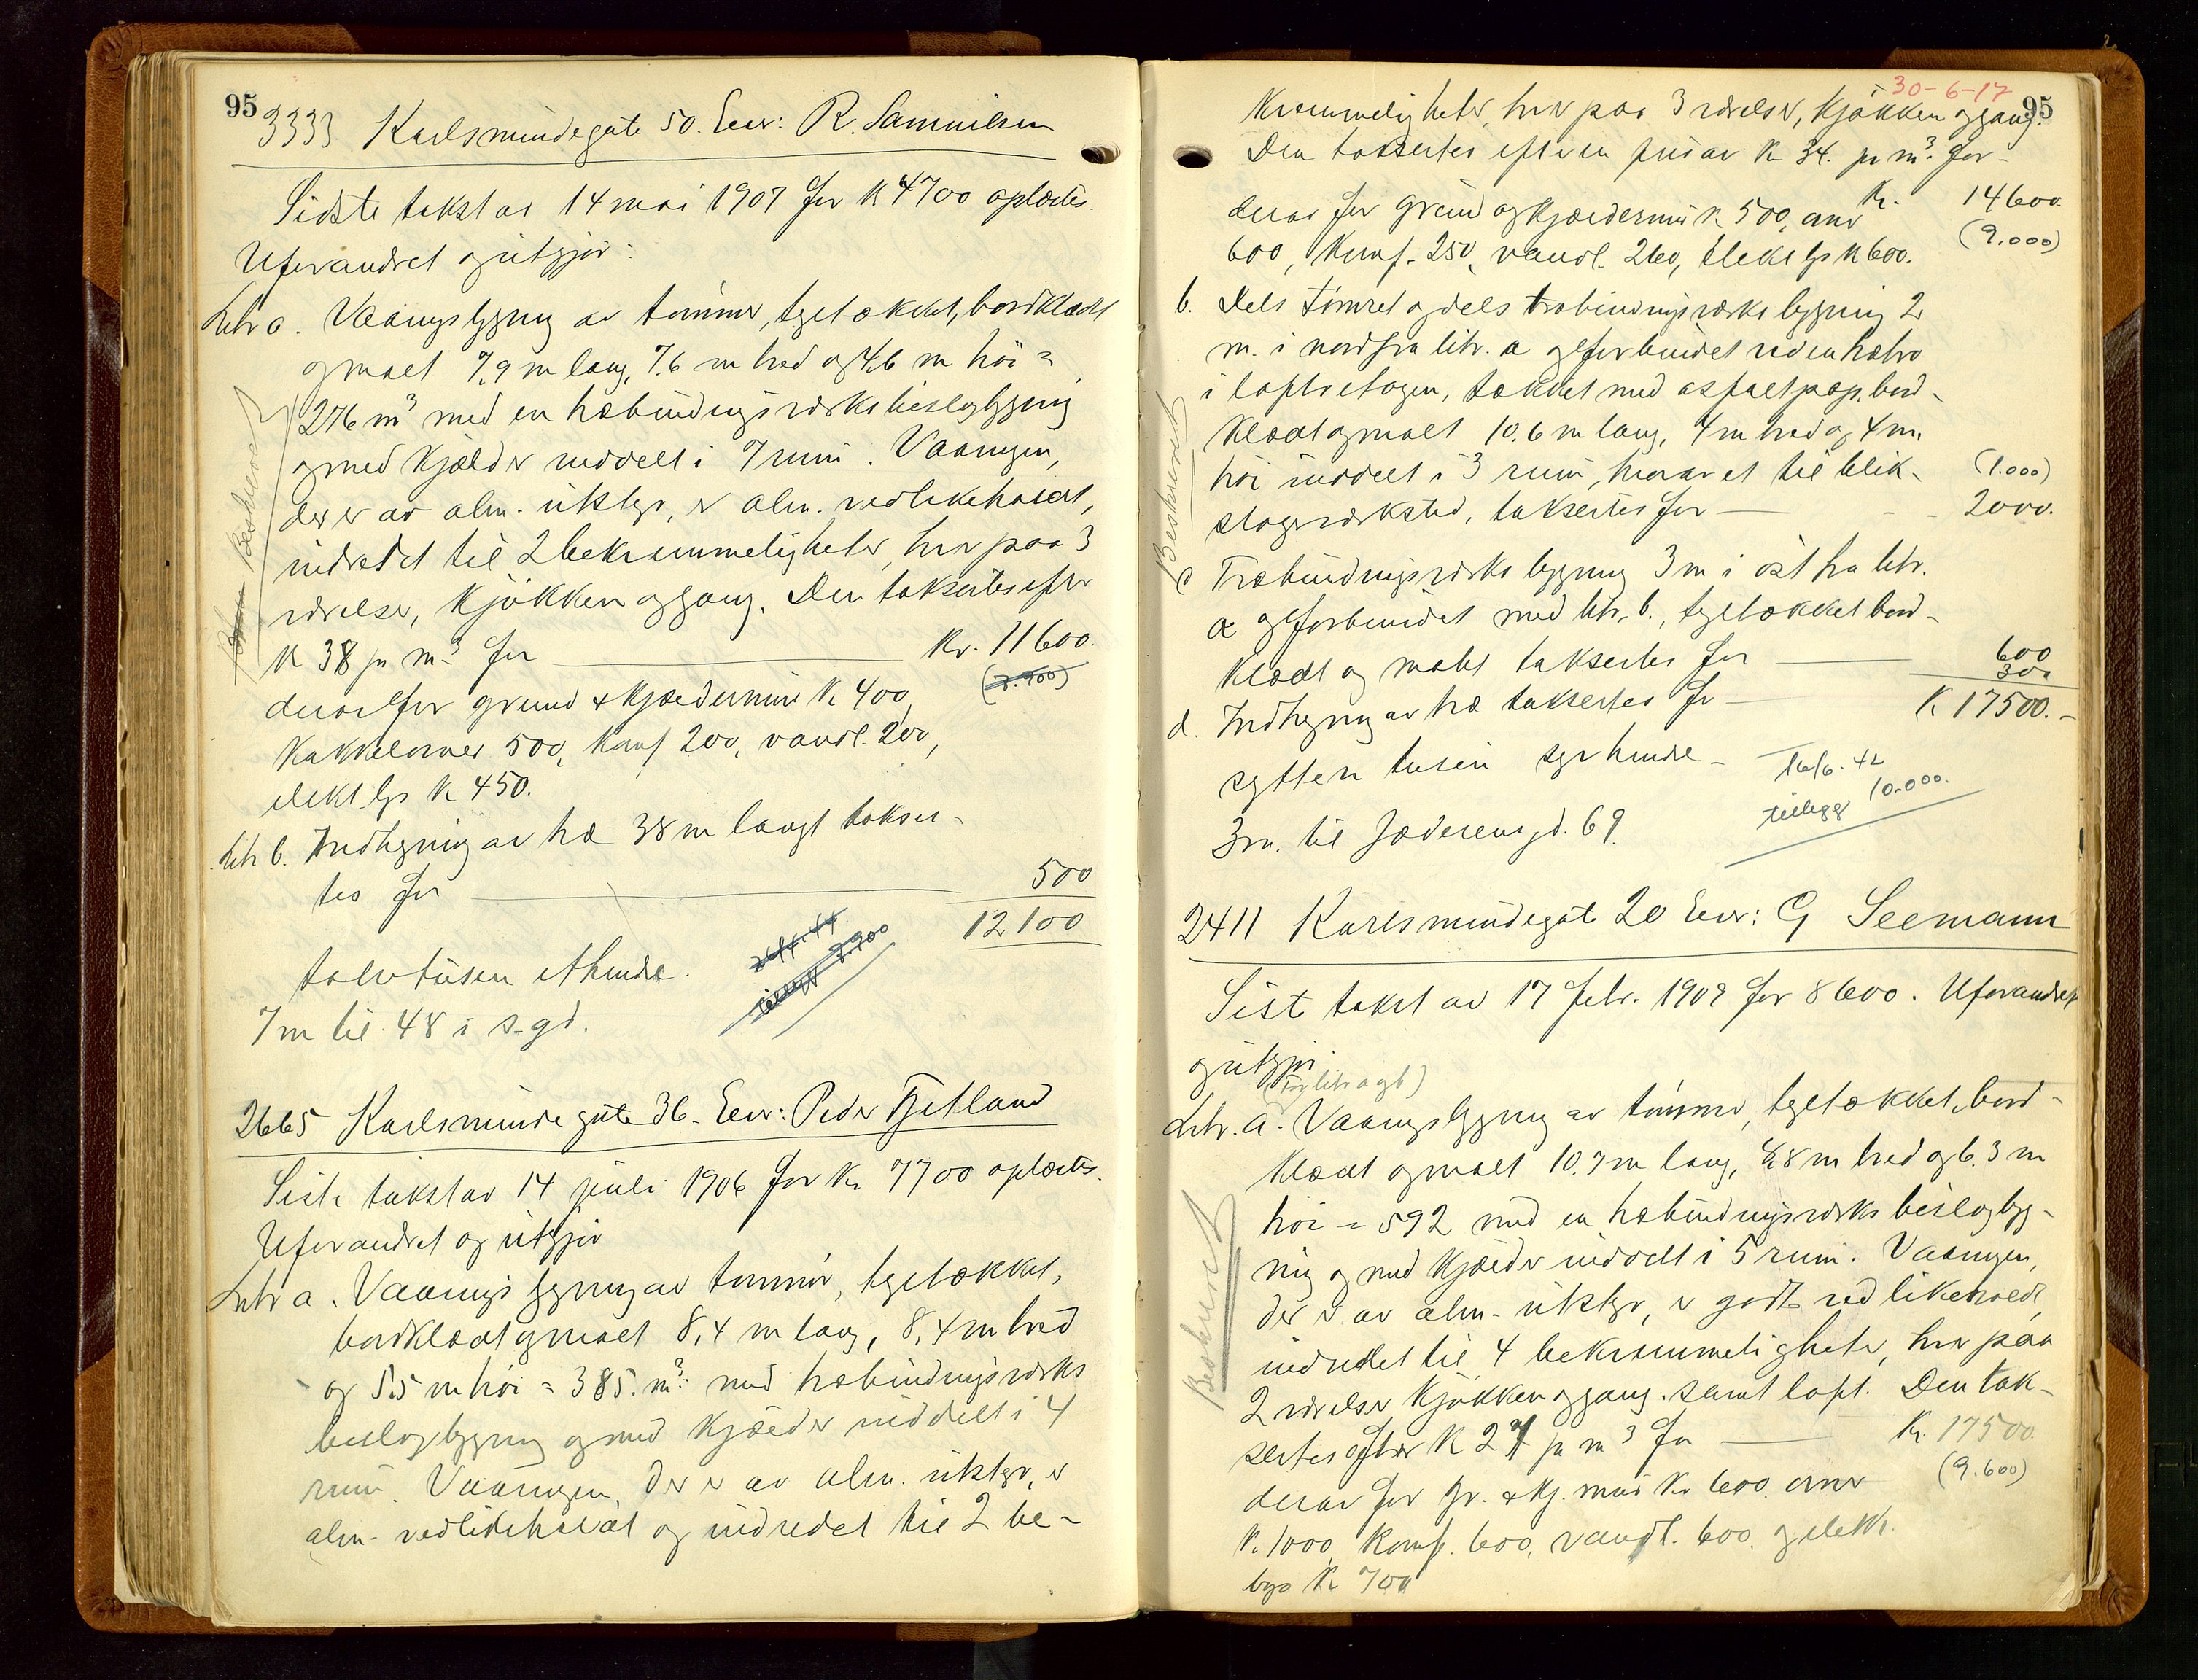 95
3333 Karlsmindegate 50. Eier: R. Samuelsen
Sidste takst av 14 mai 1907 for K 4700 oplæstes.
Uforandret og utgjør:
Litr a. Vaaningsbygning av tømmer, tegltækket, bordklædt
og malt 7,9 m lang, 7.6 m bred og 4,6 m høi =
276 m³ med en træbindingsværks bislagbygning
og med kjelder inddelt i 7 rum. Vaaningen,
der er av alm. utstyr, er alm. vedlikeholdt,
indredet til 2 bekvemmeligheter, hver paa 3
værelser, kjøkken og gang. Den takseres efter
K 38 pr m³ for Kr. 11600.
(7.900)
derav for grund & kjældermur K 400,
kakkelovner 500, komf 200, vandl. 200,
elekt. lys K 450.
Litr b. Indhegning av træ 38 m langt takser-
tes for 500
12100
tolv tusen et hundre.
26/4.44
tillegg 7.900
7 m til 48 i s. gd.
2665 Karlsminde gate 36. Eier: Peder Tjetland
Siste takst av 14 juli 1906 for Kr. 7700 oplæstes.
Uforandret og utgjør
Litr a. Vaaningsbygning av tømmer, tegltækket,
bordklædt og malt 8,4 m lang, 8,4 m bred
og 5.5 m høi = 385. m³: med træbindingsværks
bislagbygning og med kjælder inddelt i 4
rum. Vaaningen, der er av alm. utstyr, er
alm. vedlikeholdt og indredet til 2 be-
Beskrevet
30-6-17
95
kvemmeligheter, hver paa 3 værelser, kjøkken og gang.
Den takseres efter en pris av K 34. pr m³. for-
Kr. 14600.
derav for grund og kjældermur K 500, ovner
(9.000)
600, Komf. 250, vandl. 260, Elekt lys K 600.
b. Dels tømret og dels træbindingsværks bygning 2
m. i nord fra litr. a og forbundet ved en træbro
i loftsetagen, tækket med asfaltpap, bord-
klædt og malt 10.6 m lang, 4 m bred og 4 m.
høi inddelt i 3 rum, hvorav et til blik-
(1.000)
slagerverksted, taksertes for 2000.
c Træbindingsværks bygning 3 m i øst fra litr.
a og forbundet med litr. b., tegltækket bord-
klædt og malt taksertes for 600
d. Indhegning av træ taksertes for 300
K 17500.-
sytten tusen syv hundre-
16/6.42
tillegg 10.000.
3 m. til Jæderengd. 69.
2411 Karlsmindegate 20 Eier: G Seemann
Siste takst av 17 febr. 1909 for 8600. Uforandret
og utgjør
(for litr a og b)
Litr. a. Vaaningsbygning av tømmer, tegltækket, bord-
klædt og malt 10.7 m lang, 8,8 m bred og 6.3 m
høi = 592 med en træbindingsværks bislagbyg-
ning og med kjælder inddelt i 5 rum. Vaaningen,
der er av alm. utstyr, er godt vedlikeholdt,
indredet til 4 bekvemmeligheter, hver paa
2 værelser kjøkken og gang. samt loft. Den tak-
sertes efter K 27 pr m³ for K. 17500.
(9.600)
derav for gr. & kj. mur Kr 600. ovner
K. 1000, Komf. 600, vandl. 600. og elektr.
lys K 700
Beskrevet
Beskrevet